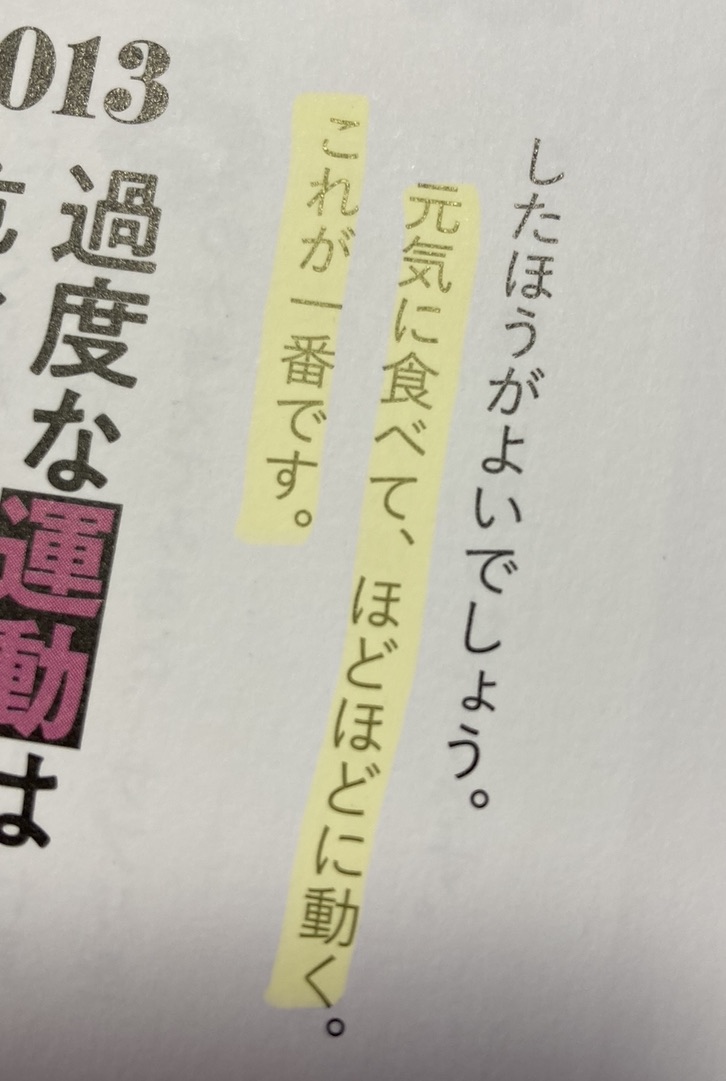 したほうがよいでしょう。
元気に食べて、ほどほどに動く。
これが一番です。
013
過度な運動は